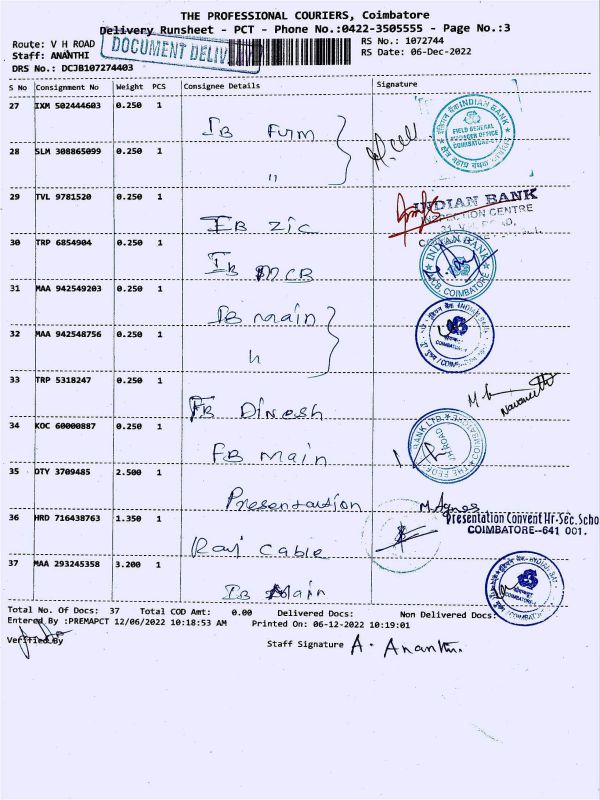 THE PROFESSIONAL COURIERS, Coimbatore
Delivery Runsheet - PCT - Phone No.:0422-3505555 - Page No.:3
Route: V H ROAD
RS No.: 1072744
Staff: ANANTHI
RS Date: 06-Dec-2022
DOCUMENT DELIV
DRS No.: DCJB107274403
S No Consignment No Weight PCS Consignee Details Signature
27 IXM 502444603 0.250 1
IB Furm
INDIAN BANK
FIELD GENERAL
MANAGER OFFICE
COIMBATORE
28 SLM 308865099 0.250 1
"
29 TVL 9781520 0.250 1
IB ZIC
INDIAN BANK
INSPECTION CENTRE
30 TRP 6854904 0.250 1
IB MCB
INDIAN BANK
COIMBATORE
31 MAA 942549203 0.250 1
IB Main
32 MAA 942548756 0.250 1
"
33 TRP 5318247 0.250 1
FB Dinesh
Navaneeth
34 KOC 60000887 0.250 1
FB Main
35 OTY 3709485 2.500 1
Presentation
M. Agnes
Presentation Convent Hr-Sec. Scho
COIMBATORE--641 001.
36 HRD 716438763 1.350 1
Ravi Cable
37 MAA 293245358 3.200 1
IB Main
Total No. Of Docs: 37 Total COD Amt: 0.00 Delivered Docs: Non Delivered Docs:
Entered By :PREMAPCT 12/06/2022 10:18:53 AM Printed On: 06-12-2022 10:19:01
Verified By
Staff Signature A. Ananthi.